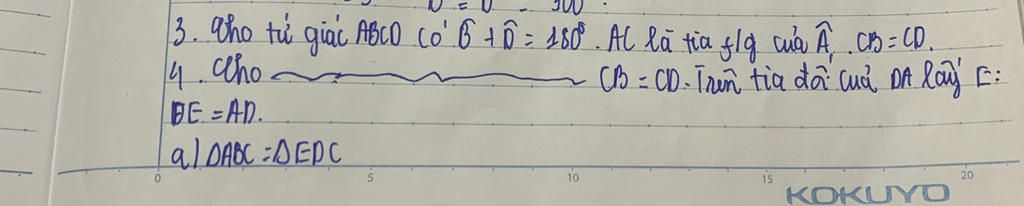 3. Cho tứ giác ABCD có B̂ + D̂ = 180°. AC là tia f/g của Â. CB = CD.
4. Cho CB = CD. Trên tia đối cuả DA lấy E:
DE = AD.
a) ΔABC = ΔEDC
0 5 10 15 20
KOKUYO